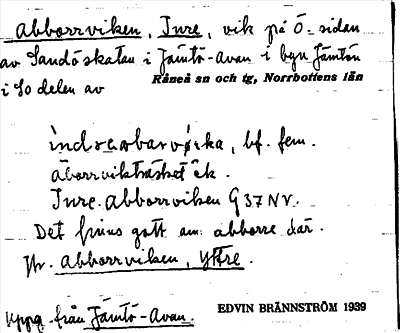 Abborrviken, Inre, vik på Ö-sidan
av Sandöskatan i Jämtö-Avan i byn Jämtön
i So delen av
Råneå sn och tg, Norrbottens län
bf. fem.
åborrvikträsket ek.
Inre. Abborrviken G 37 NV.
Det finns gott om abborre där.
Jfr. Abborrviken, Yttre.
Uppg. från Jämtö-Avan.
EDVIN BRÄNNSTRÖM 1939